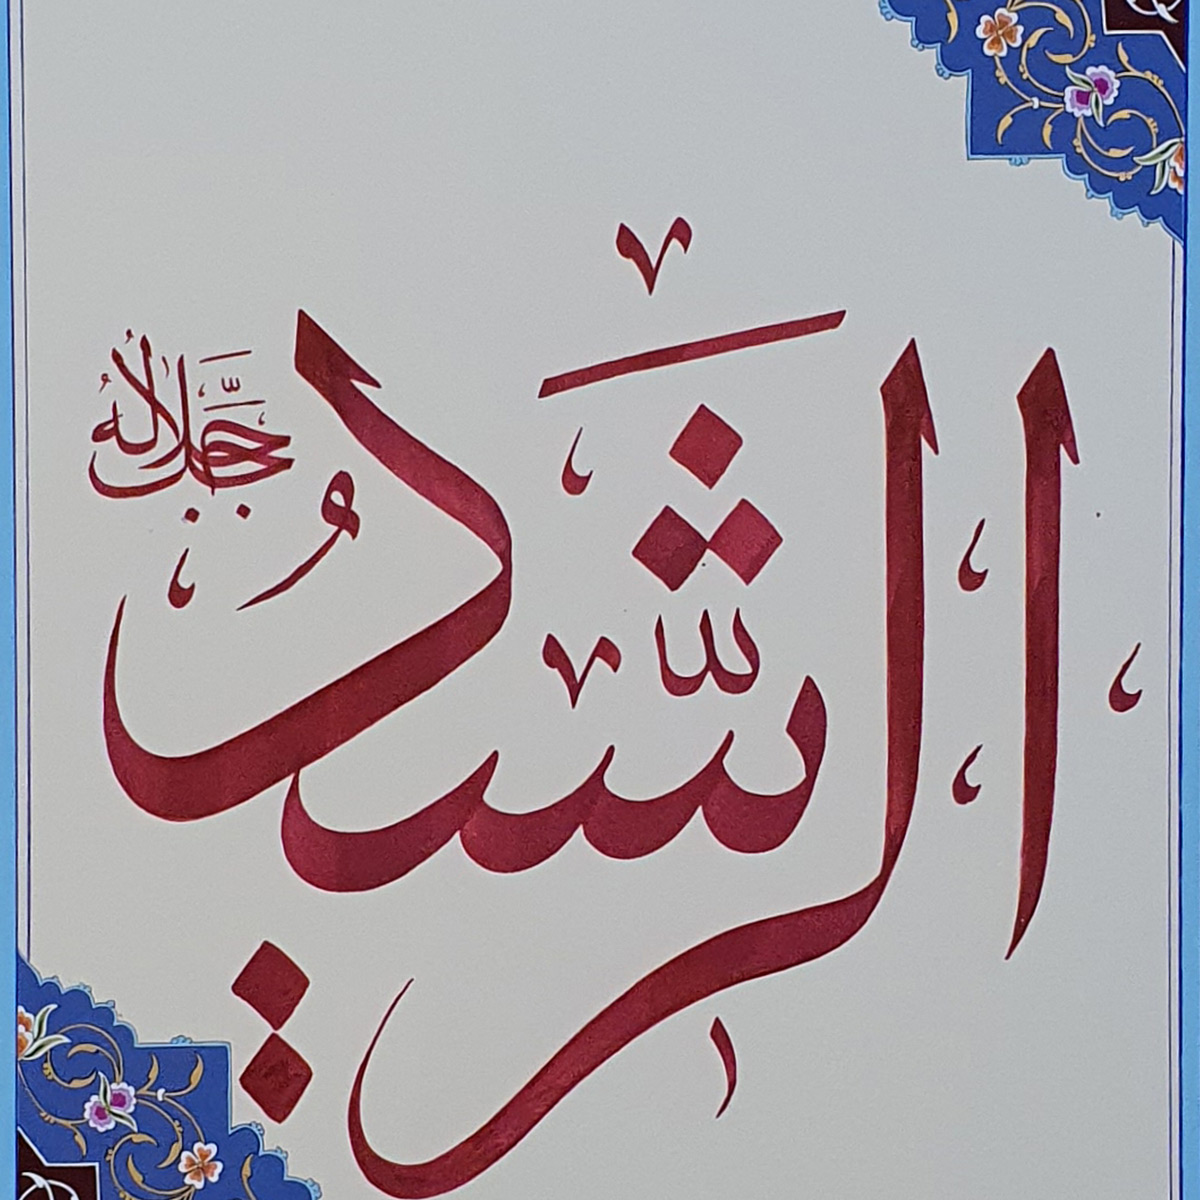 الرشيد
جل جلاله